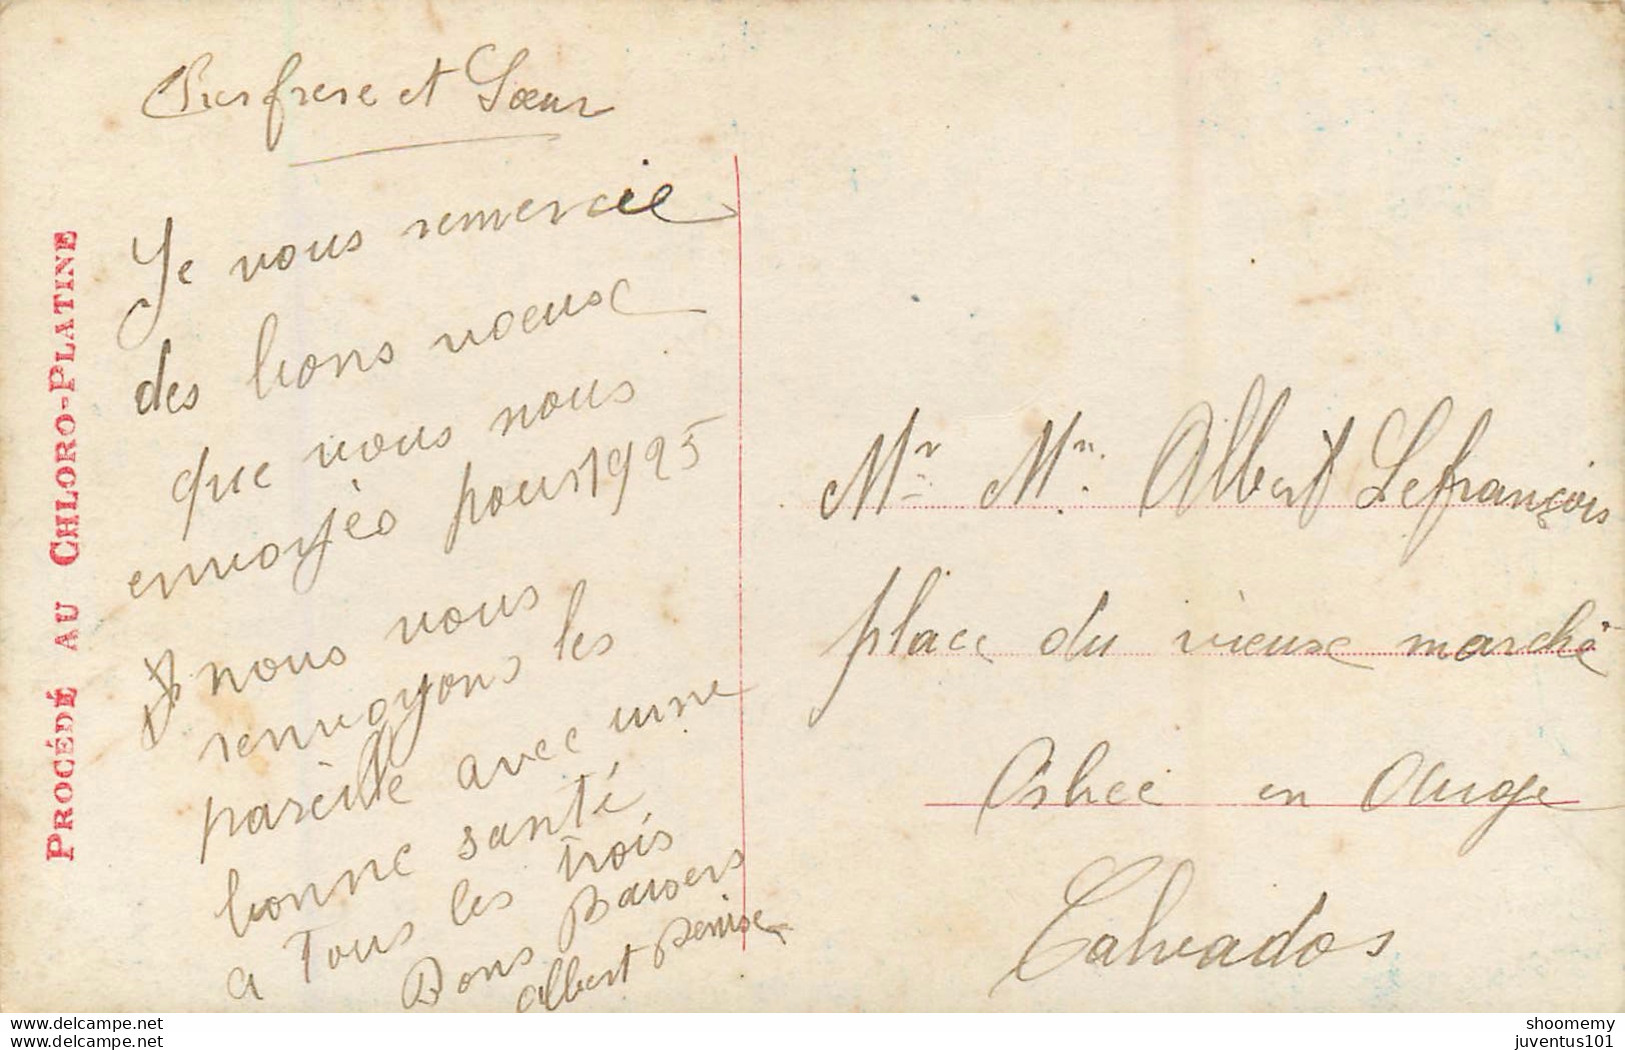 PROCÉDÉ AU CHLORO-PLATINE
Chers frere et Sœur
Je vous remercie
des bons voeux
que vous nous
envoyés pour 1925
nous vous
renvoyons les
pareille avec une
bonne santé
a Tous les trois
Bons Baisers
Albert Denise
Mr Mm Albert Lefrançois
place du vieux marché
en Auge
Calvados
www.delcampe.net
shoomemy
juventus101